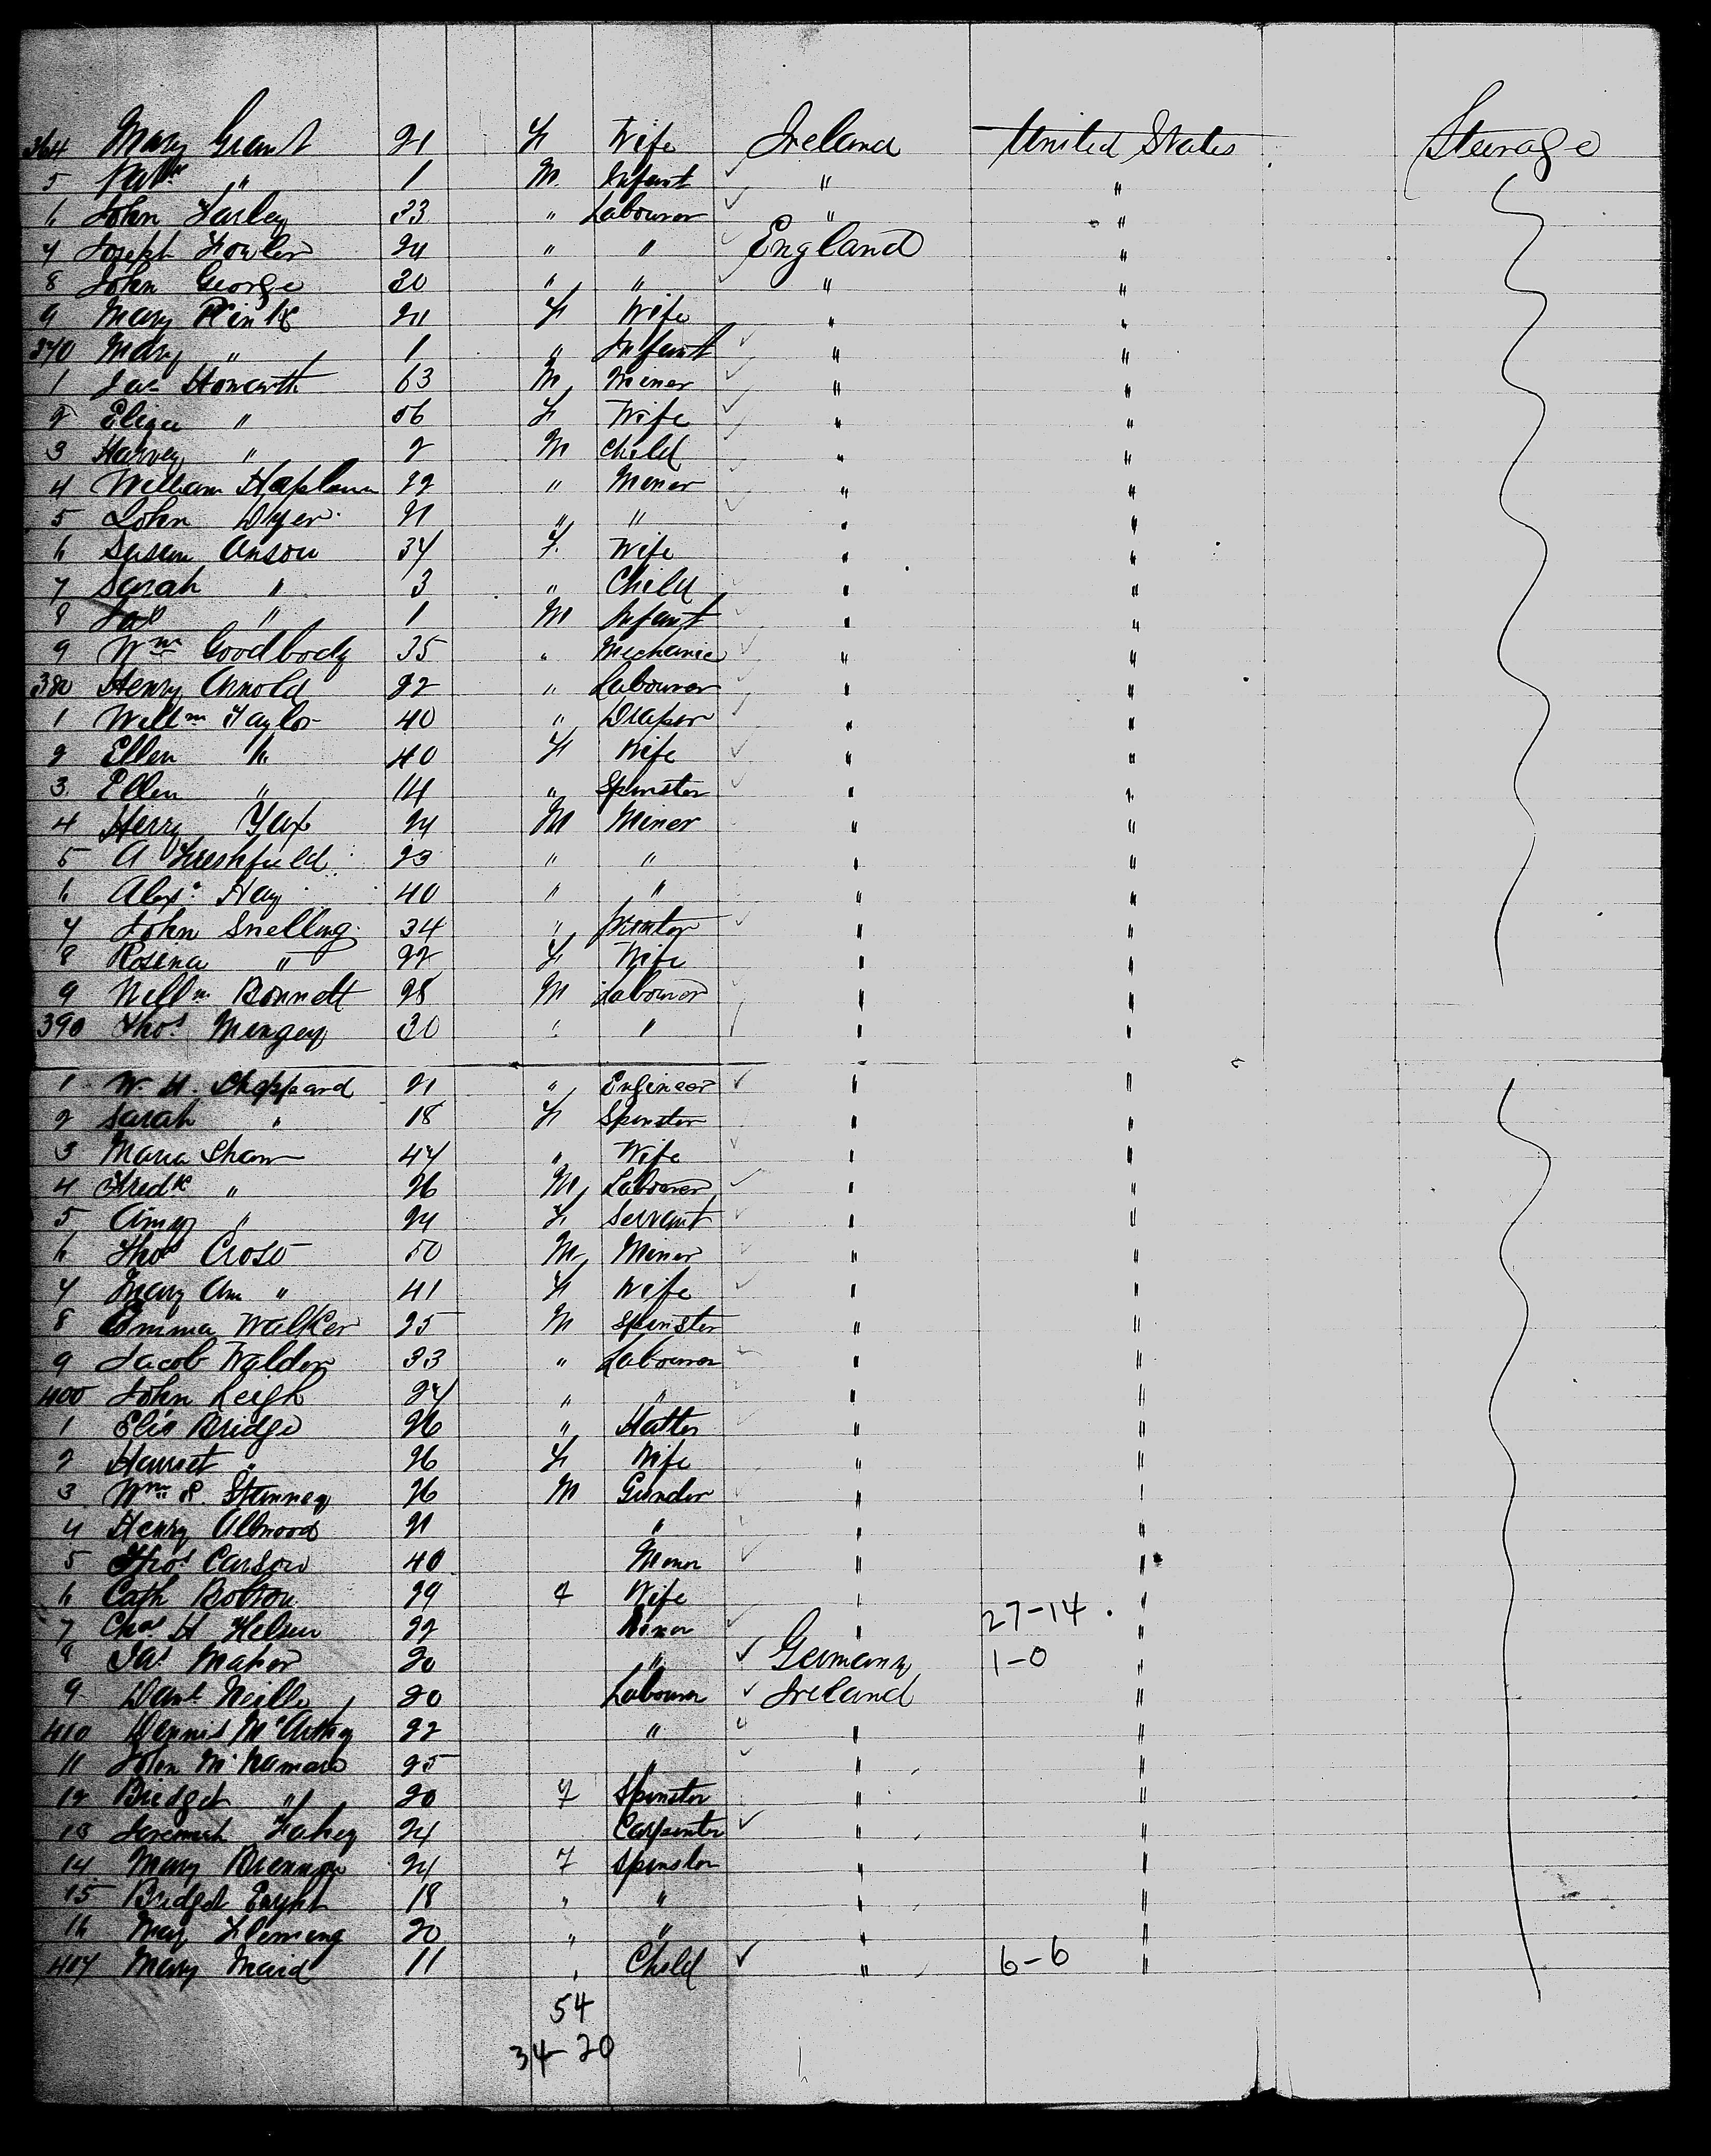 364 Mary Grant 21 F Wife Ireland United States Steerage
5 " 1 M Infant " "
6 John Farley 33 " Labourer " "
7 Joseph Fowler 24 " " England "
8 John George 30 " " " "
9 Mary 24 F Wife " "
370 Mary " 1 " Infant " "
1 Jas Howarth 63 M Miner " "
2 Eliza " 56 F Wife " "
3 Harvey " 2 M Child " "
4 William 22 " Miner " "
5 John Dyer 21 " " " "
6 Susan Anson 34 F Wife " "
7 Sarah " 3 " Child " "
8 Jas " 1 M Infant " "
9 Wm Goodbody 35 " Mechanic " "
380 Henry Arnold 22 " Labourer " "
1 Willm Taylor 40 " Draper " "
2 Ellen " 40 F Wife " "
3 Ellen " 14 " Spinster " "
4 Henry 24 M Miner " "
5 A Freshfield 23 " " " "
6 Alexr Hay 40 " " " "
7 John Snelling 34 " Printer " "
8 Rosina " 22 F Wife " "
9 Willm Bonnett 28 M Labourer " "
390 Thos Mingey 30 " " " "
1 W. H. Sheppard 21 " Engineer " "
2 Sarah " 18 F Spinster " "
3 Maria Shaw 47 " Wife " "
4 Fredk " 26 M Labourer " "
5 Amey " 24 F Servant " "
6 Thos Cross 50 M Miner " "
7 Mary Ann " 41 F Wife " "
8 Emma Walker 25 M Spinster " "
9 Jacob Walden 33 " Labourer " "
400 John Leigh 27 " " " "
1 Bridge 26 " Hatter " "
2 Harriet " 26 F Wife " "
3 Wm 26 M " "
4 Henry Allwood 21 " " "
5 Thos Carson 40 Miner " "
6 Cath Bolton 29 F Wife " "
7 Chas H 22 Miner " 27-14 "
8 Jas 20 " Germany 1-0 "
9 Danl Neille 20 Labourer Ireland "
410 Dennis McCarthy 22 " " "
11 John McNamara 25 " " "
12 Bridget " 20 F Spinster " "
13 Jeremiah Fahey 24 Carpenter " "
14 Mary Brennan 24 F Spinster " "
15 Bridget 18 " " " "
16 Mary Fleming 20 " " " "
417 Mary 11 " Child " 6-6 "
54
34-20